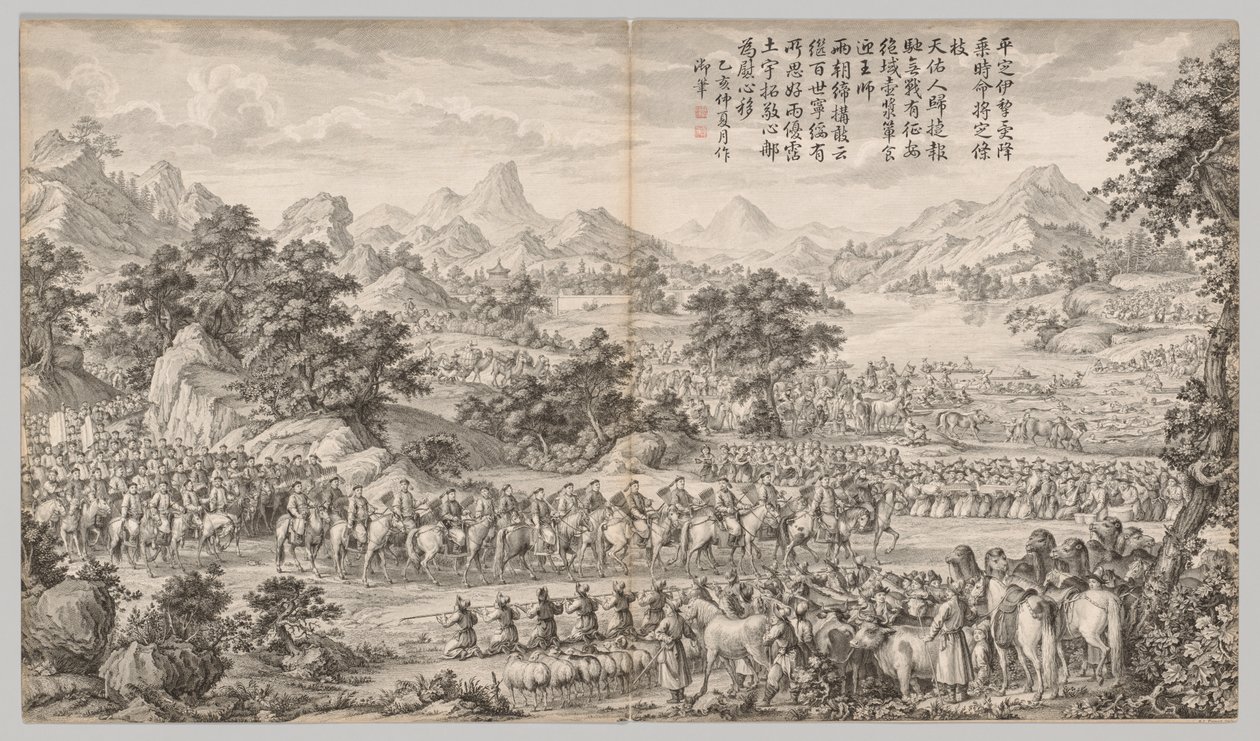 平定伊犂受降
乘時命將定條
枝
天佑人歸捷報
馳無戰有征安
絶域壺漿簞食
迎王師
兩朝締搆敢云
繼百世寧綏有
所思好雨優霑
土宇拓敬心那
為慰心移
乙亥仲夏月作
御筆